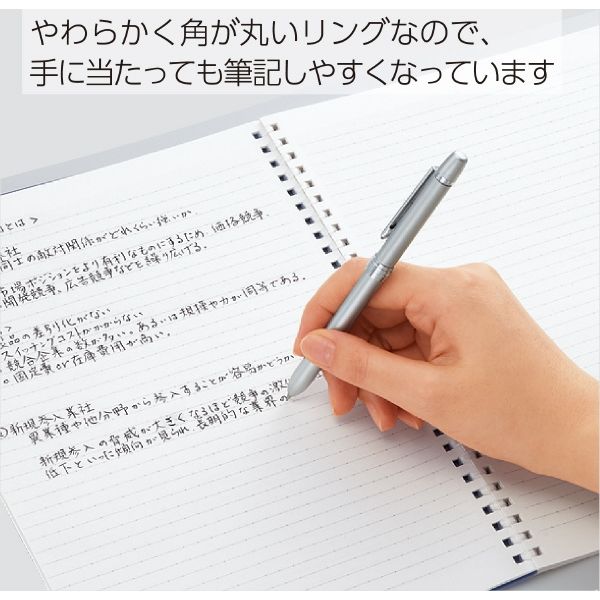 やわらかく角が丸いリングなので、
手に当たっても筆記しやすくなっています
とは >
社
同士の敵対関係がどれくらい強いか
市場ポジションをより有利なものにするため、価格競争、
開発競争、広告競争などを繰り広げる。
?
品の差別化がない
スイッチングコストがかからない
競合企業の数が多い。あるいは規模や力が同等である。
固定費or在庫費用が高い。
新規参入業社
異業種や他分野から参入することが容易かどうか
新規参入の脅威が大きくなるほど競争の激し
低下といった傾向が見られ、長期的な業界の